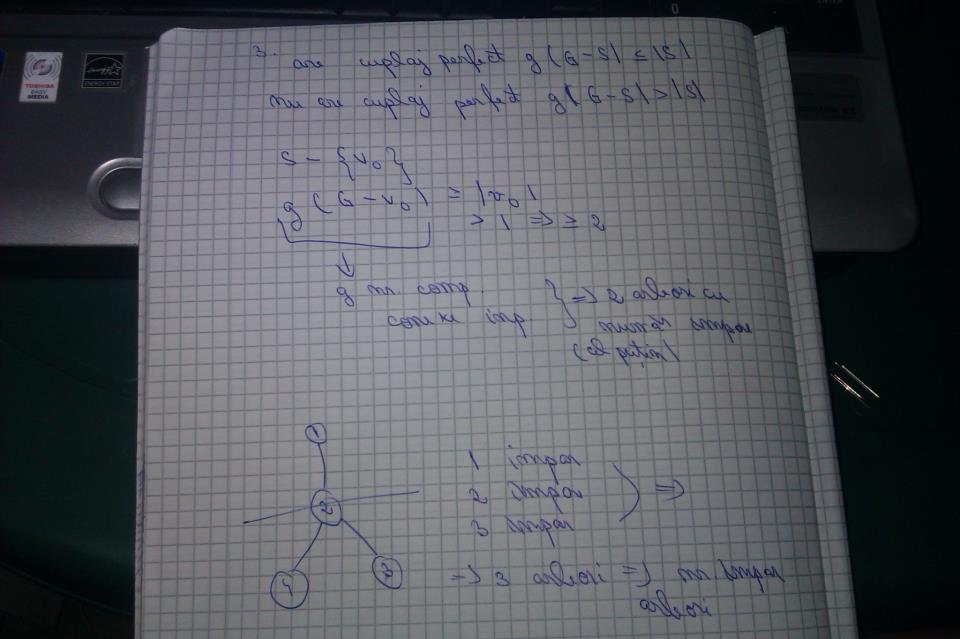 TOSHIBA
EASY
MEDIA
ENERGY STAR
ENTER
0
3. are cuplaj perfect g(G-S) ≤ |S|
nu are cuplaj perfect g(G-S) > |S|
S - {v₀}
g(G-v₀) ≥ |v₀|
> 1 => ≥ 2
g nr. comp.
conexe imp } => 2 arbori cu
număr impar
(cel puțin)
1
2
4
3
1 impar
2 impar
3 impar ) =>
-> 3 arbori => nr. impar
arbori